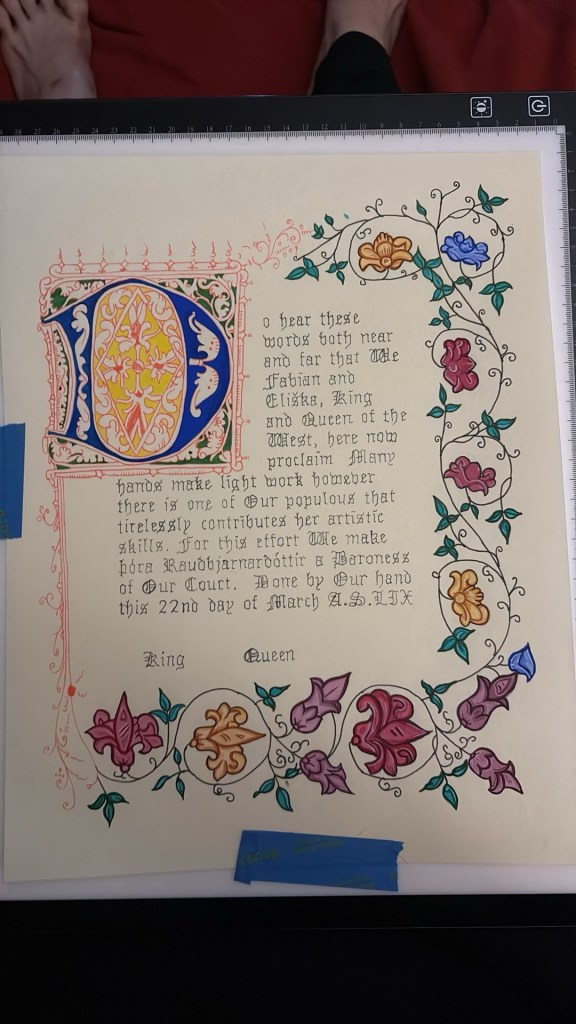 Do hear these
words both near
and far that We
Fabian and
Eliška, King
and Queen of the
West, here now
proclaim Many
hands make light work however
there is one of Our populous that
tirelessly contributes her artistic
skills. For this effort We make
þóra Raudbjarnardóttir a Baroness
of Our Court. Done by Our hand
this 22nd day of March A.S.LIX
King Queen